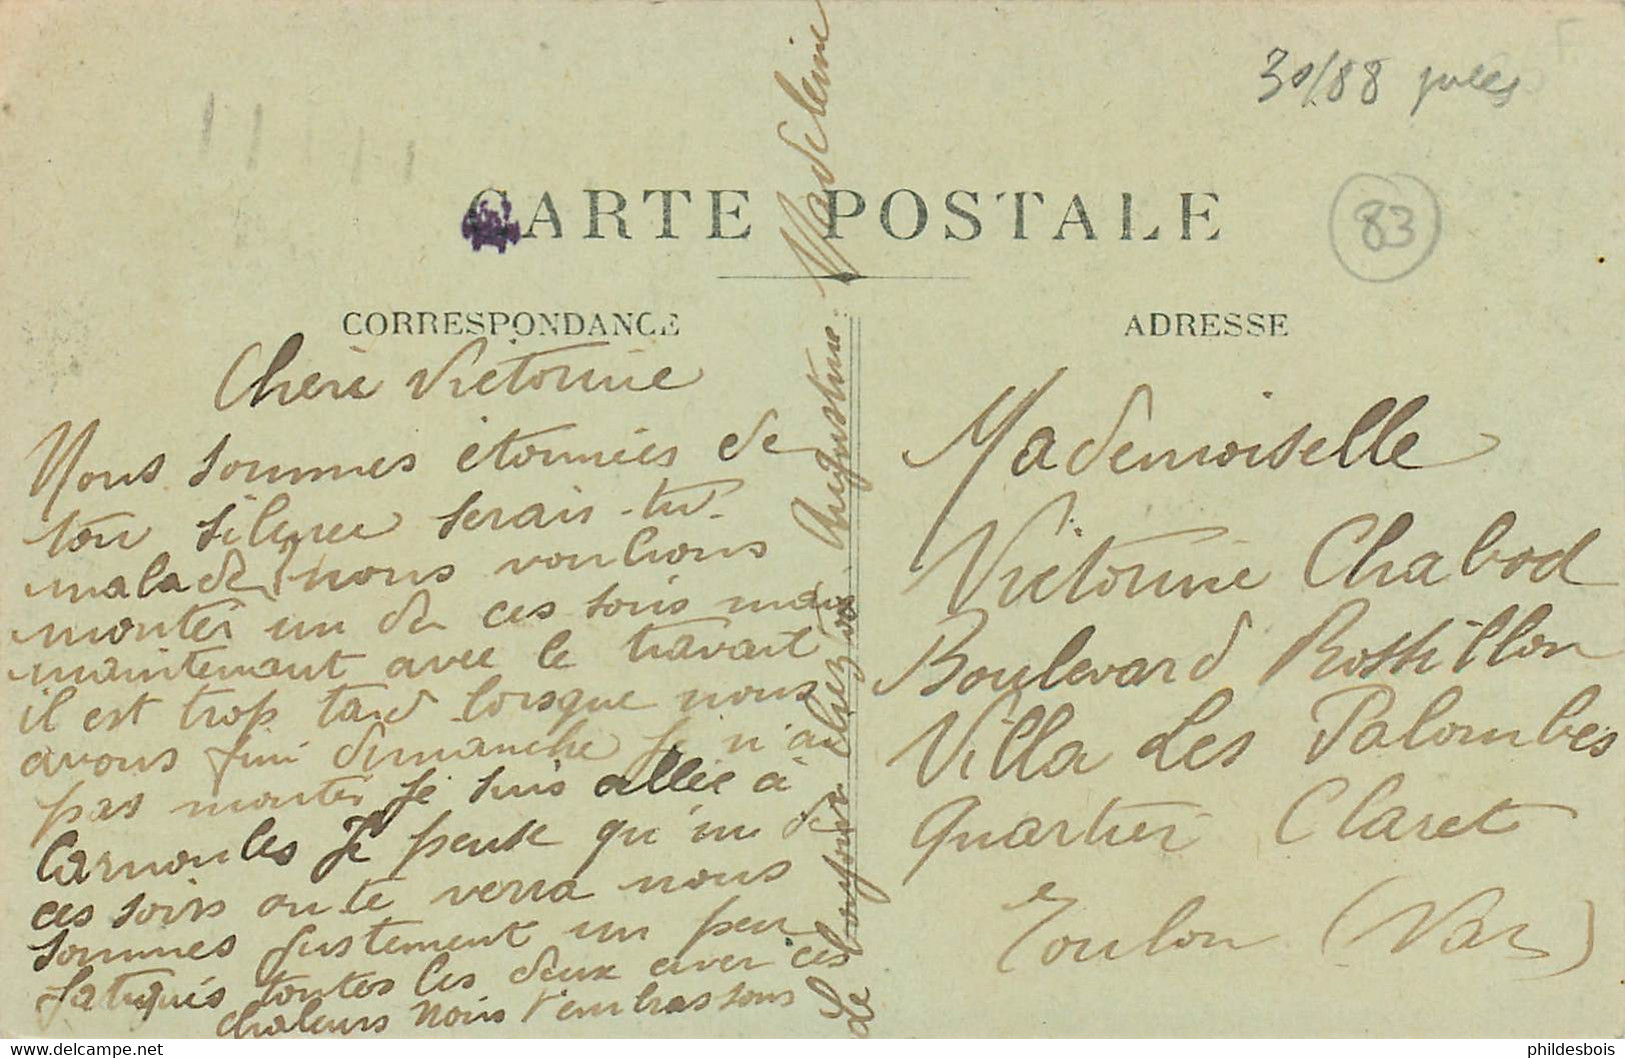 30/88 jules
83
CARTE POSTALE
CORRESPONDANCE
Cherè Victorine
Nous sommes étonnées de
ton silence serais-tu
malade, nous voulions
monter un de ces soirs mais
maintenant avec le travail
il est trop tard lorsque nous
avons fini dimanche je n'ai
pas monter je suis allée à
Carnoules Je pense qu'un de
ces soirs on te verra nous
sommes justement un peu
fatigués toutes les deux avec ces
chaleurs Nous t'embrassons
Le bonjour chez toi. Augustine. Madeleine
ADRESSE
Mademoiselle
Victorine Chabod
Boulevard Rossillon
Villa Les Palombes
Quartier Claret
Toulon (Var)
phildesbois
www.delcampe.net